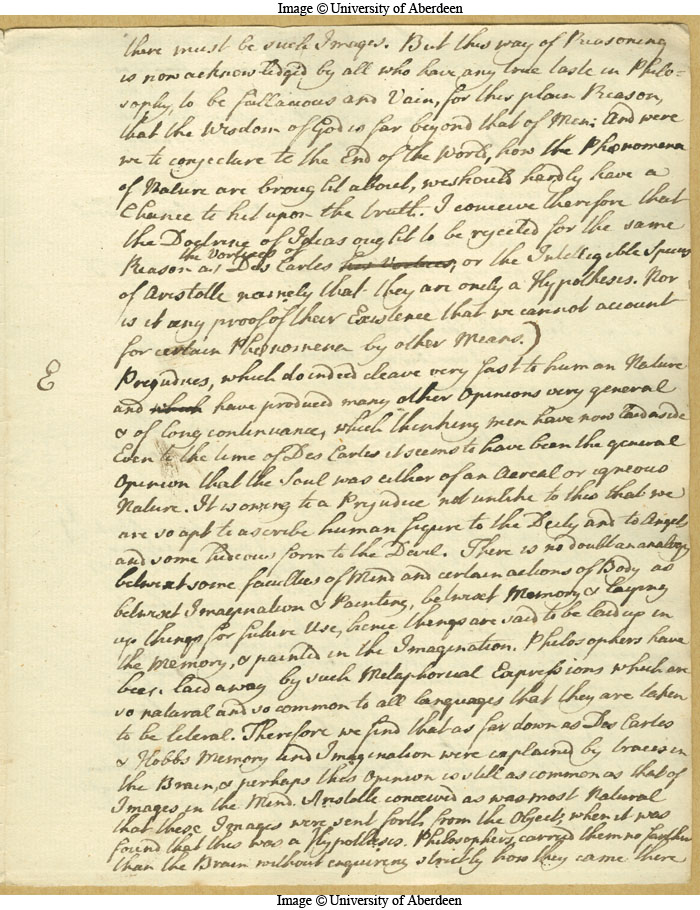 Image © University of Aberdeen
there must be such Images. But this way of Reasoning
is now acknowledgd by all who have any true taste in Philo=
sophy, to be fallacious and Vain, for this plain Reason,
that the Wisdom of God is far beyond that of Men; And were
we to conjecture to the End of the World, how the Phænomena
of Nature are brought about, we should hardly have a
Chance to hit upon the truth. I conceive therefore that
the Doctrine of Ideas ought to be rejected for the same
the Vortices of
Reason as Des Cartes his Vortices, or the Intelligible Species
of Aristotle namely that they are only a Hypothesis. Nor
is it any proof of their Existence that we cannot account
for certain Phenomena by other Means.)
E
Prejudices, which do indeed cleave very fast to human Nature
and which have produced many other Opinions very general
& of long continuance, which thinking men have now laid aside
Even to the time of Des Cartes it seems to have been the general
Opinion that the Soul was either of an Aereal or igneous
Nature. It is owing to a Prejudice not unlike to this that we
are so apt to ascribe human figure to the Deity and to Angels
and some hideous form to the Devil. There is no doubt an analogy
betwixt some faculties of Mind and certain actions of Body as
betwixt Imagination & Painting, betwixt Memory & laying
up things for future Use, hence things are said to be laid up in
the Memory, & painted in the Imagination. Philosophers have
been led away by such Metaphorical Expressions which are
so natural and so common to all languages that they are taken
to be literal. Therefore we find that as far down as Des Cartes
& Hobbs Memory and Imagination were explained by traces in
the Brain, & perhaps this Opinion is still as common as that of
Images in the Mind. Aristotle conceived as was most Natural
that these Images were sent forth from the Object, when it was
found that this was a Hypothesis. Philosophers carried them no farther
than the Brain without enquiring strictly how they came there
Image © University of Aberdeen